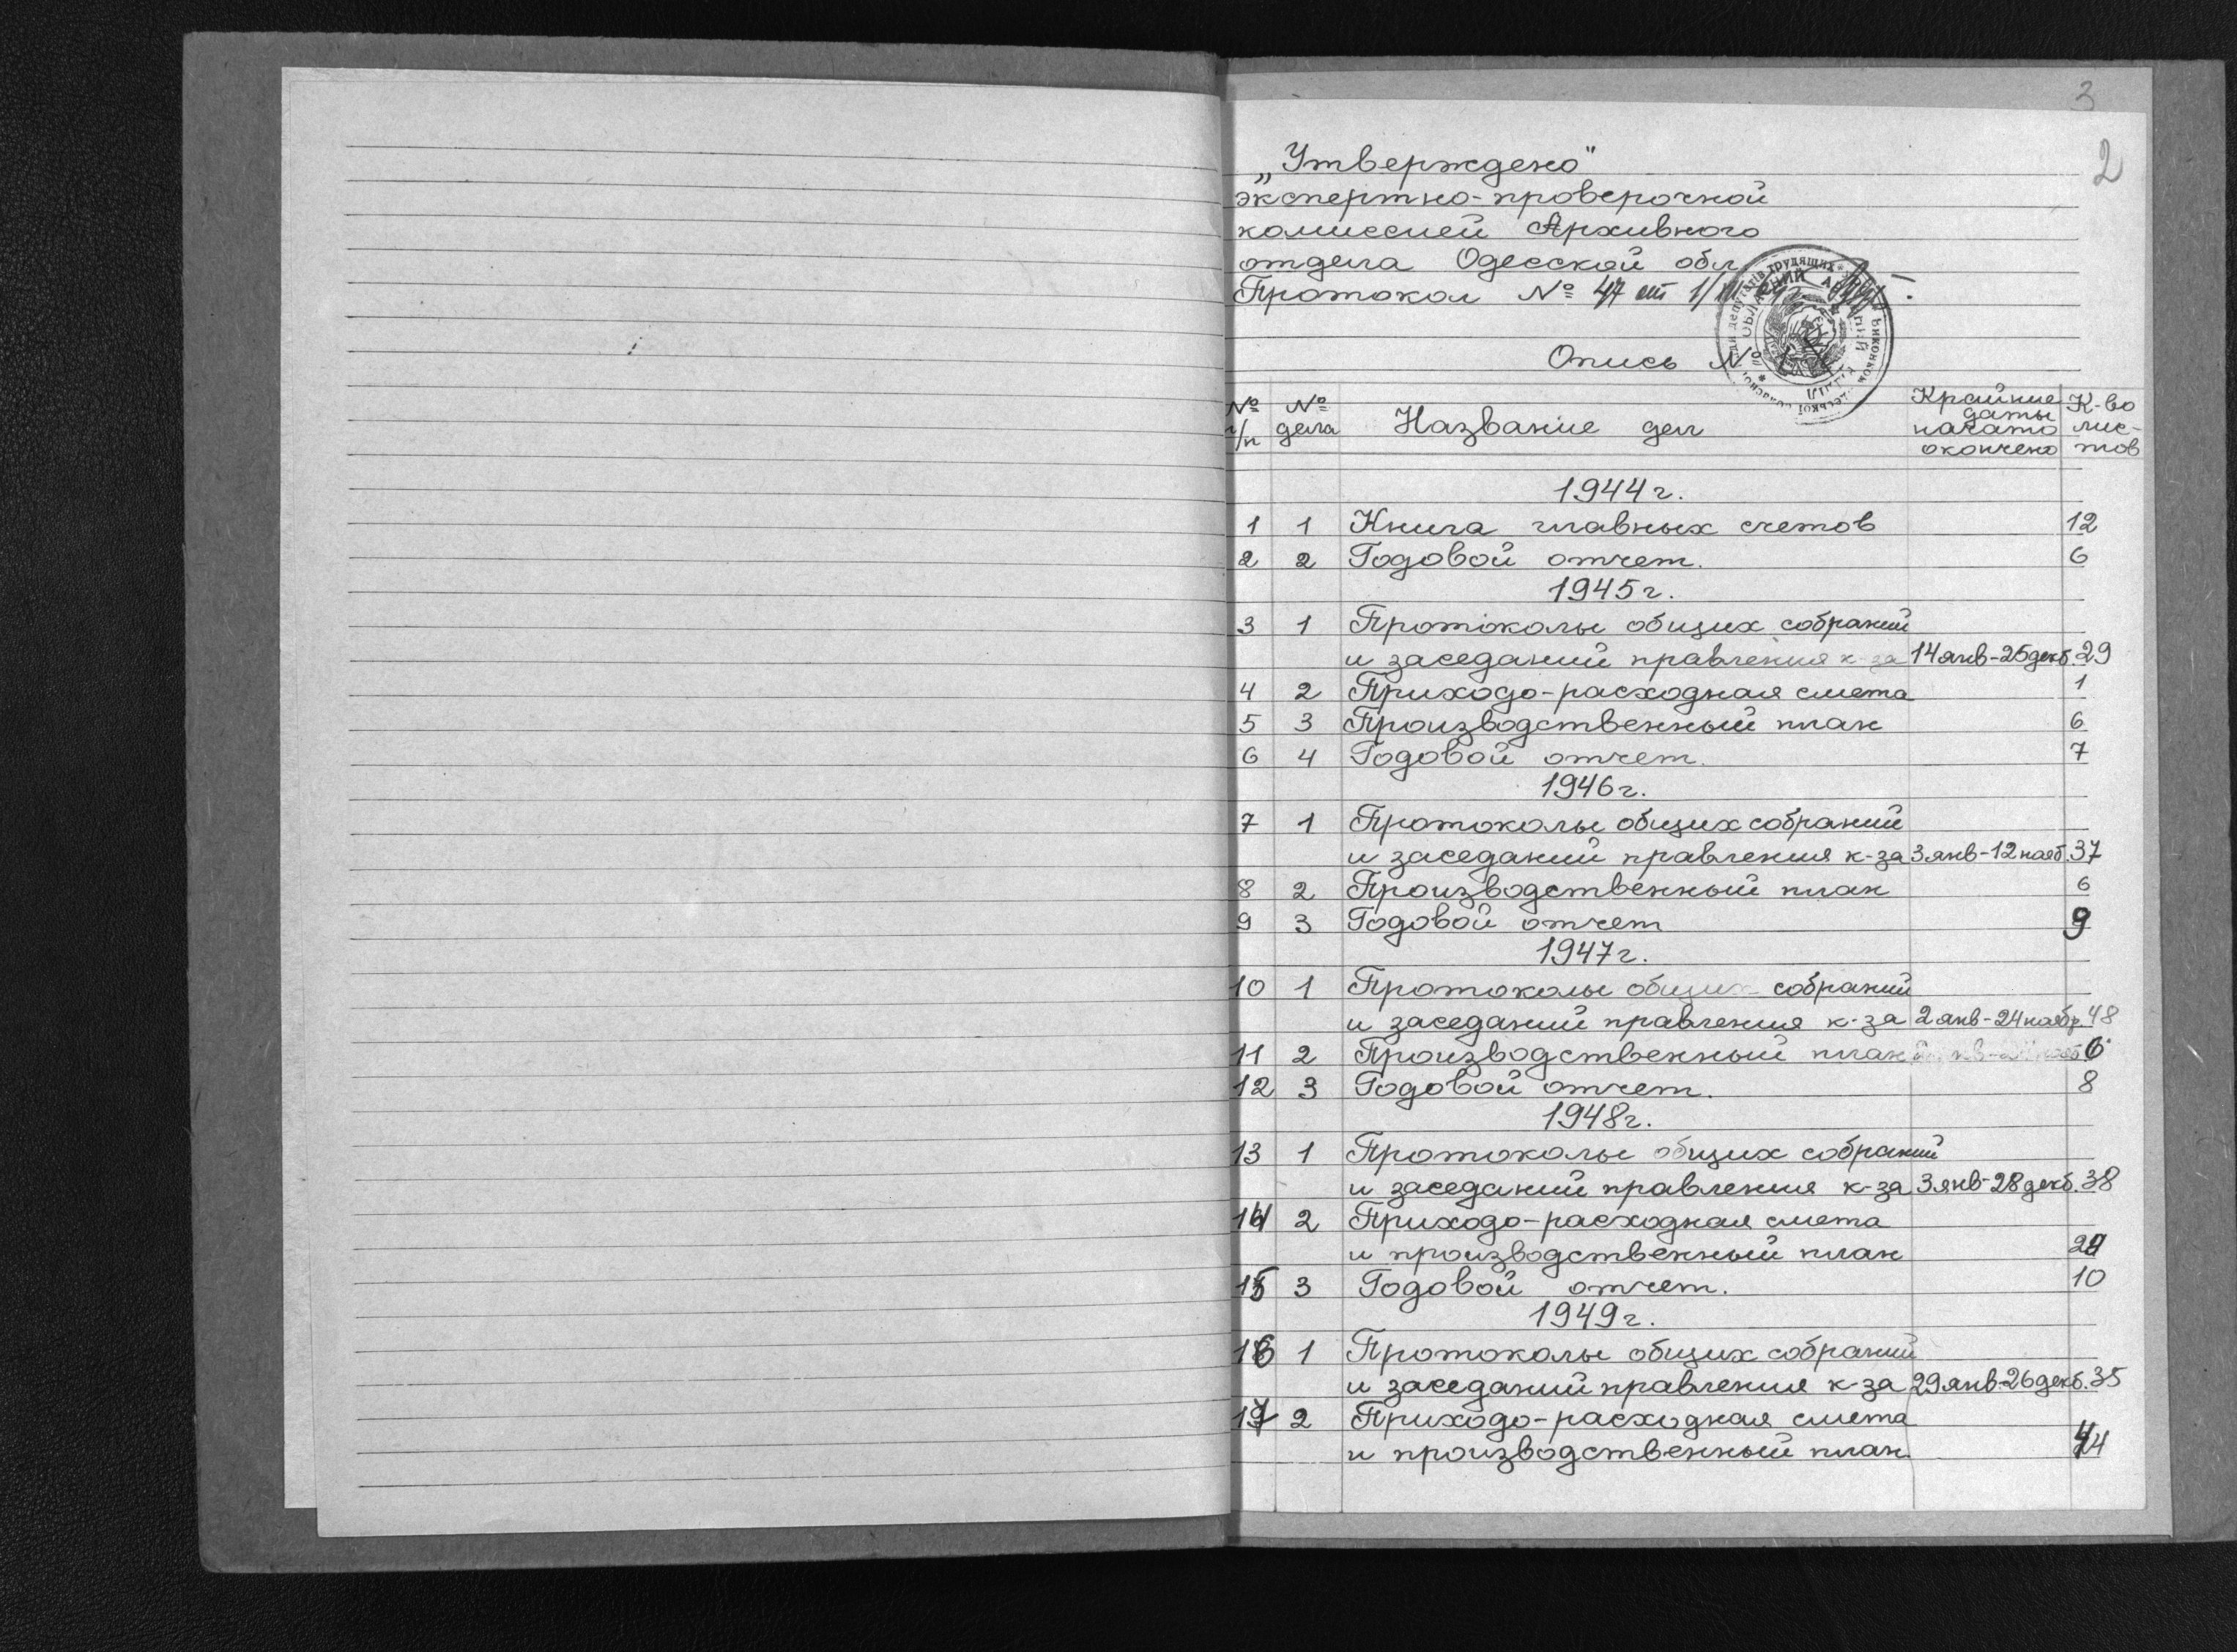 3
2
„Утверждено"
экспертно-проверочной
комиссией Архивного
отдела Одесской обл
Протокол № 47 от 1/
Опись №
№ п/п № дела Название дел Крайние даты начато окончено К-во лис-тов
1944 г.
1 1 Книга главных счетов 12
2 2 Годовой отчет. 6
1945 г.
3 1 Протоколы общих собраний
и заседаний правления к-за 14 янв-25 дек. 29
4 2 Приходо-расходная смета 1
5 3 Производственный план 6
6 4 Годовой отчет. 7
1946 г.
7 1 Протоколы общих собраний
и заседаний правления к-за 3 янв-12 нояб. 37
8 2 Производственный план 6
9 3 Годовой отчет 9
1947 г.
10 1 Протоколы общих собраний
и заседаний правления к-за 2 янв-24 ноябр. 48
11 2 Производственный план 6
12 3 Годовой отчет. 8
1948 г.
13 1 Протоколы общих собраний
и заседаний правления к-за 3 янв-28 декб. 38
14 2 Приходо-расходная смета
и производственный план
15 3 Годовой отчет. 10
1949 г.
16 1 Протоколы общих собраний
и заседаний правления к-за 29 янв-26 декб. 35
17 2 Приходо-расходная смета
и производственный план. 44